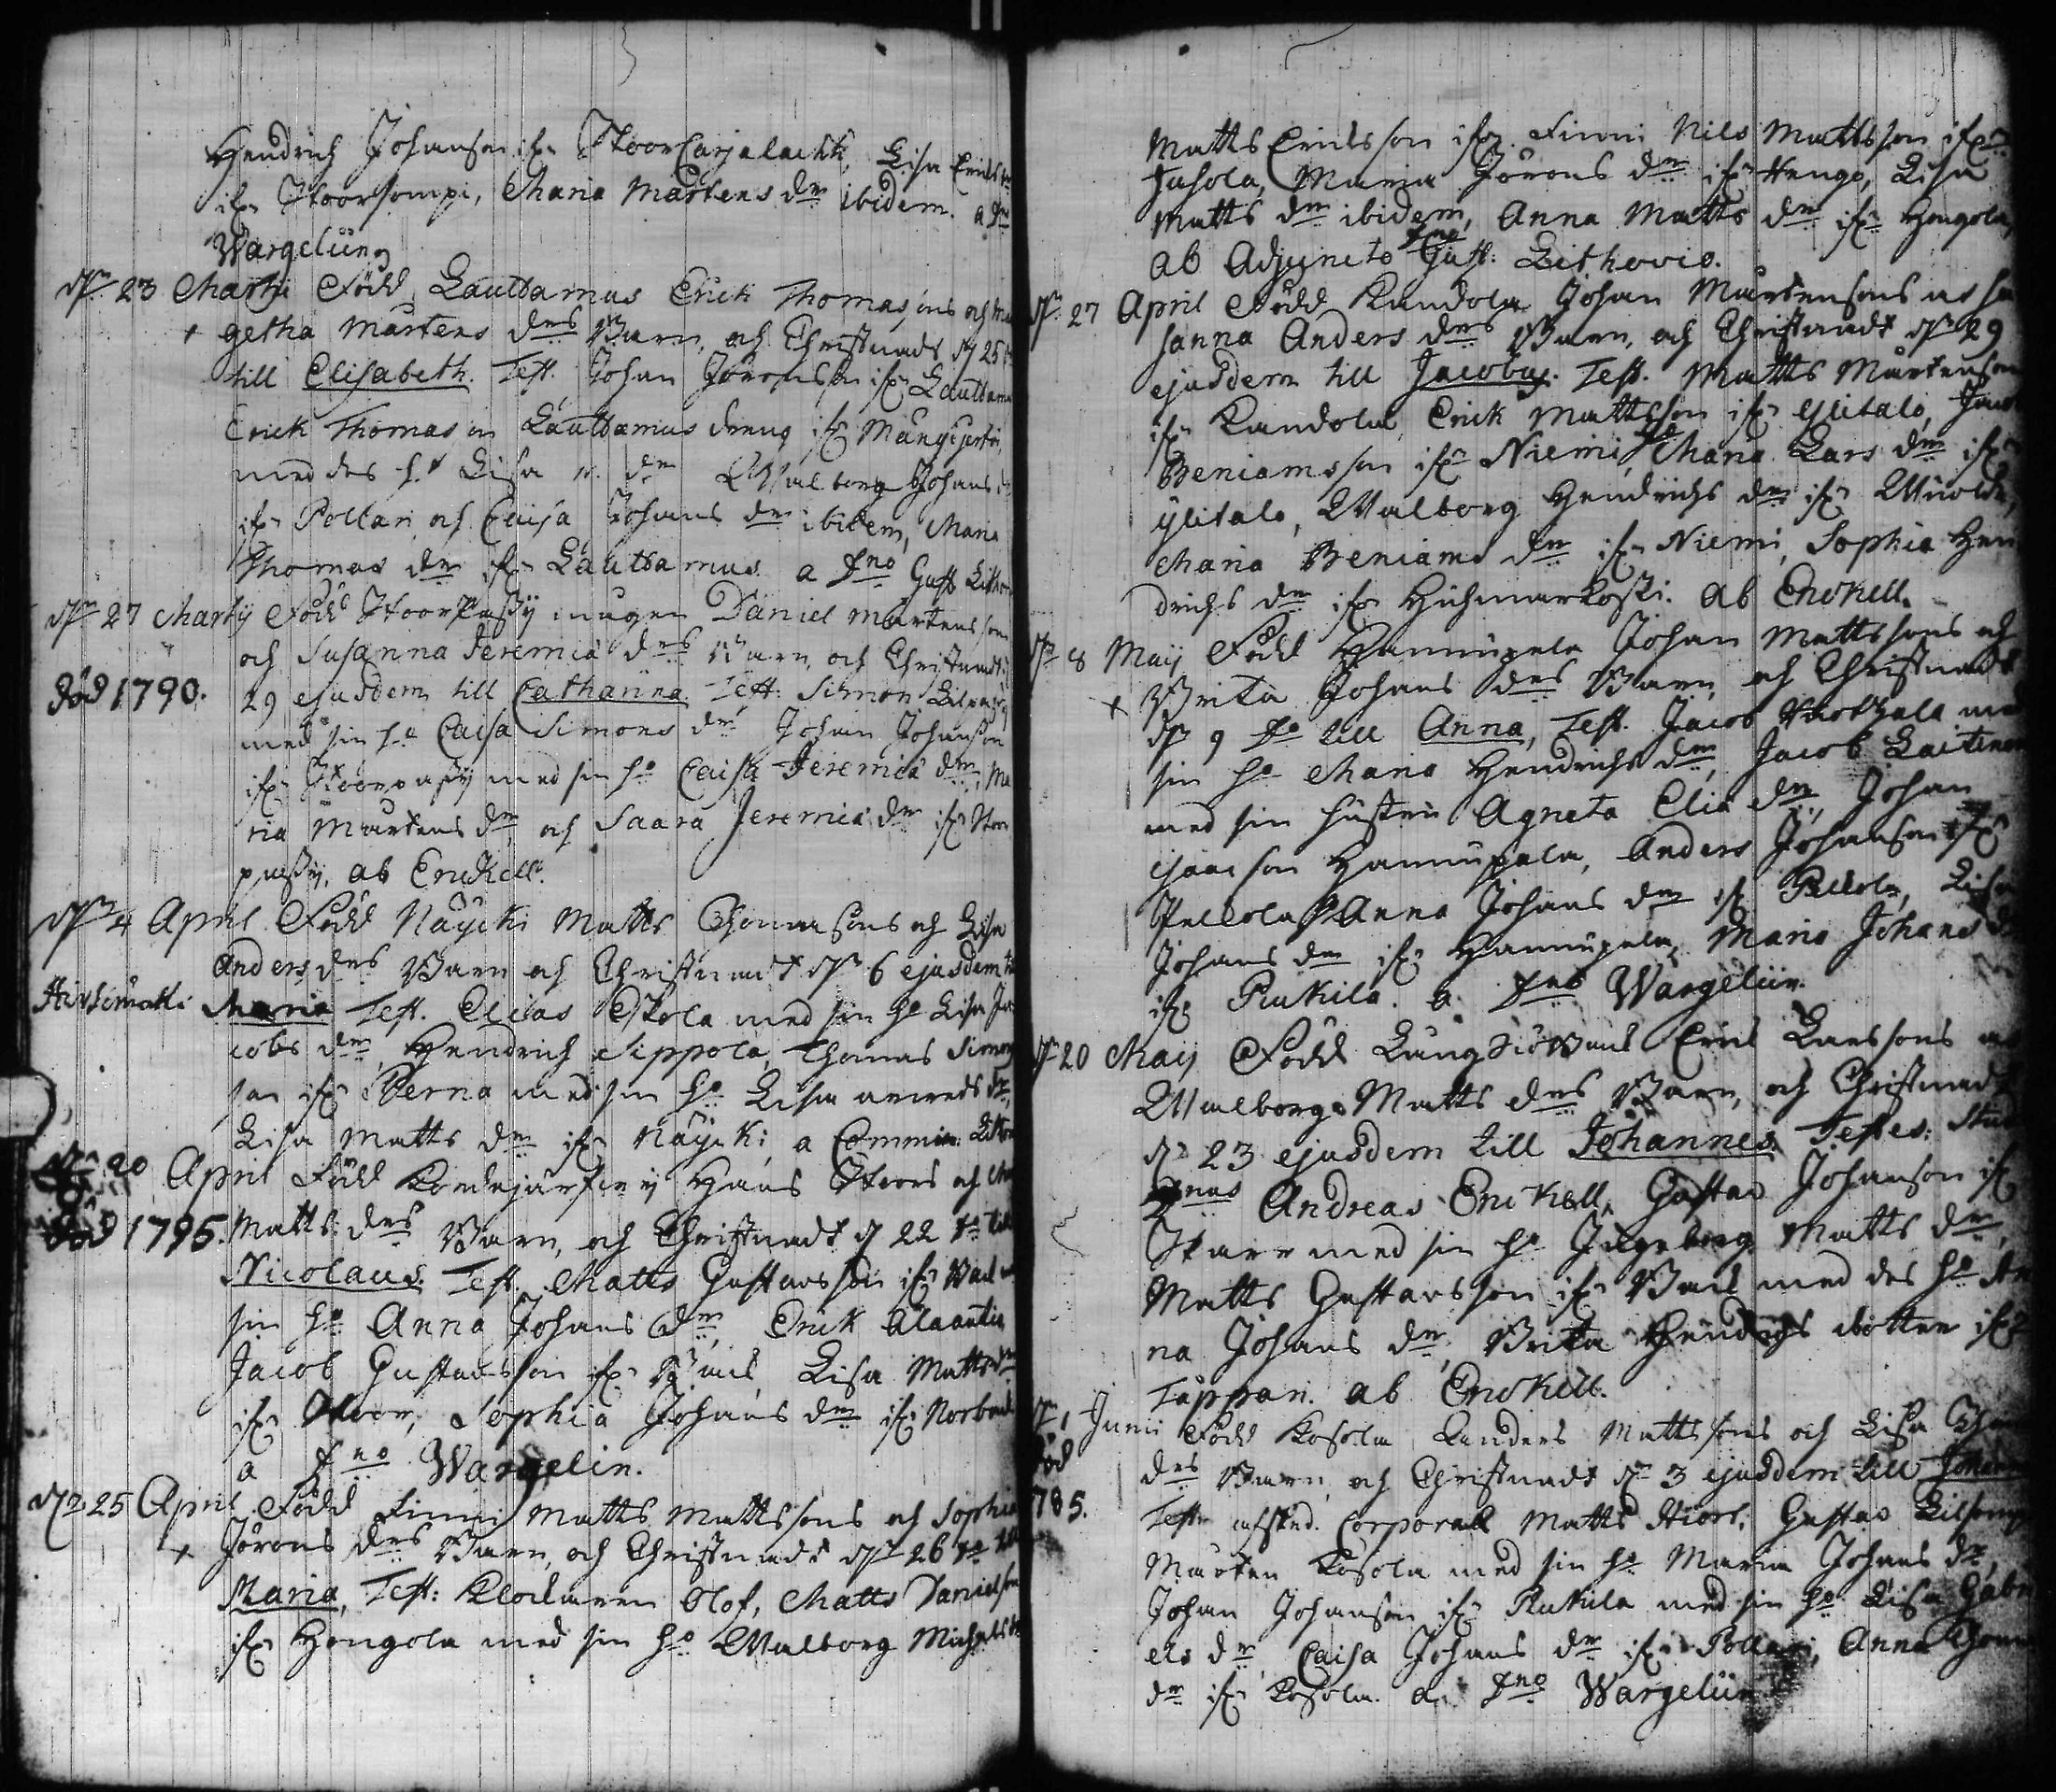 Hendrich Johansson ifr. Stoor Carjalachti, Lisa Erichs
ifr. Stoorsompi, Maria Mårtens dr. ibidem. a Dno
Wargeliin
d. 23 Martii Född Lauttamus Erich Thomasons och Mar
+ getha Mårtens drs Barn, och Christnades d. 25
till Elisabeth. Test. Johan Jöransson ifr. Lauttamus
Erick Thomason Lauttamus dreng ifr.
med des h. Lisa dr. Walborg Johans dr
ifr. Pollari och Caisa Johans dr. ibidem, Maria
Thomas dr. ifr. Lauttamus. a Dno Gust. Lith
d. 27 Martij Född Stoorpassij mågen Daniel Mårtensson
och Susanna Jeremiæ drs Barn, och Christnades
död 1790. 29 ejusdem till Catharina. Test: Simon Lilpassij
med sin h. Caisa Simons dr. Johan Johansson
ifr. Stoorpassij med sin h. Caisa Jeremiæ dr., Ma
ria Mårtens dr. och Saara Jeremiæ dr. ifr. Stoor
passij, ab Enckell.
d. 4 April Född Näycki Matts Thomasons och Lisa
Anders drs Barn och Christnades d. 6 ejusdem till
Maria Test. Elias Skola med sin h. Lisa Ja
cobs dr., Hendrich Sippola, Thomas Simons
son ifr. Perna med sin h. Lisa dr.
Lisa Matts dr. ifr. Näycki, a Commin: Lith
d. 20 April Född Kordejärfwij Hans Stoors och
död 1795. Matts drs Barn, och Christnades d. 22 do till
Nicolaus. Test. Matts Gustavsson ifr.
sin h. Anna Johans dr, Erick Alaantti
Jacob Gustavsson ifr. Lisa Matts dr
ifr. Stoor, Sophia Johans dr. ifr. Norback
a Dno Wargelin.
d. 25 April Född Finni Matts Mattssons och Sophia
+ Jörans drs Barn, och Christnades d. 26 do till
Maria, Test: Klockaren Olof, Matts Danielson
ifr. Hongola med sin h. Walborg Michels dr
Matts Erichsson ifr. Finni Nils Mattsson ifr.
Jusola, Maria Jörans dr. ifr. Kengo, Lisa
Matts dr. ibidem, Anna Matts dr. ifr. Hongola,
ab Adjuncto Dno Gust. Lithovio.
d. 27 April Född Kandola Johan Mårtensons och Su
sanna Anders drs Barn, och Christnades d. 29
ejusdem till Jacobus. Test. Matts Mårtenson
ifr. Kandola, Erick Mattsson ifr. Ylitalo, Jacob
Beniamsson ifr. Niemi, Maria Lars dr. ifr.
Ylitalo, Walborg Hendrichs dr. ifr.
Maria Beniams dr. ifr. Niemi, Sophia Hen
drichs dr. ifr. Huhmarkoski. ab Enckell.
d. 8 Maij Född Hannuxela Johan Mattssons och
+ Brita Johans drs Barn, och Christnades
d. 9 do till Anna, Test. Jacob med
sin h. Maria Hendrichs dr, Jacob Laitinen
med sin hustru Agneta Eliæ dr, Johan
Isaacson Hannuxela, Anders Johansson ifr
Pellola, Anna Johans dr. ifr. Pellola, Lisa
Johans dr. ifr. Hannuxela, Maria Johans dr
ifr. Rukila. a Dno Wargeliin.
d. 20 Maij Född Långsiövaus Erics Larssons och
Walborg Matts drs Barn, och Christnades
d. 23 ejusdem till Johannes. Testes: Stud
Dnus Andreas Enckell, Gustav Johansson ifr.
Skare med sin h. Ingeborg Matts dr,
Matts Gustavsson ifr. med des h. An
na Johans dr, Brita Hendrichs dotter ifr.
Tåppari. ab Enckell.
d. 1 Junii Född Kosola Anders Mattssons och Lisa Thom
död drs Barn, och Christnades d. 3 ejusdem till Johan
1785. Test. afsked. Corporal Matts Hiort, Gustav Lilsomp
Mårten Kosola med sin h. Maria Johans dr,
Johan Johanson ifr. Rukila med sin h. Lisa Gabri
els dr. Caisa Johans dr. ifr. Pollari, Anna Thom
dr. ifr. Kosola. a. Dno Wargeliin